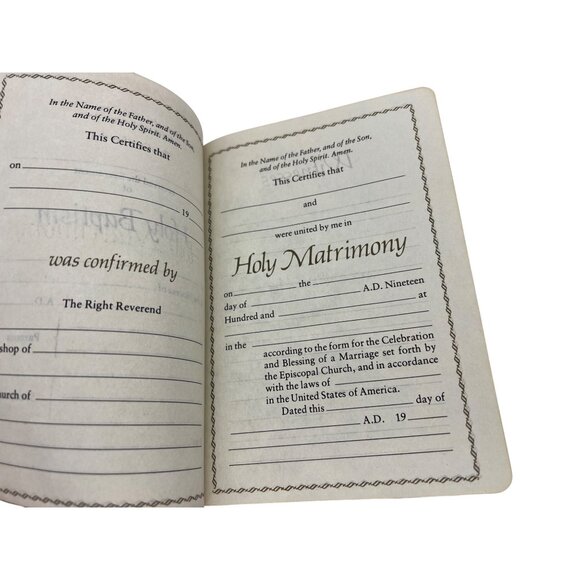 In the Name of the Father, and of the Son,
and of the Holy Spirit. Amen.
This Certifies that
on
19
was confirmed by
The Right Reverend
shop of
hurch of
In the Name of the Father, and of the Son,
and of the Holy Spirit. Amen.
This Certifies that
and
were united by me in
Holy Matrimony
on the
day of A.D. Nineteen
Hundred and at
in the according to the form for the Celebration
and Blessing of a Marriage set forth by
the Episcopal Church, and in accordance
with the laws of
in the United States of America.
Dated this day of
A.D. 19